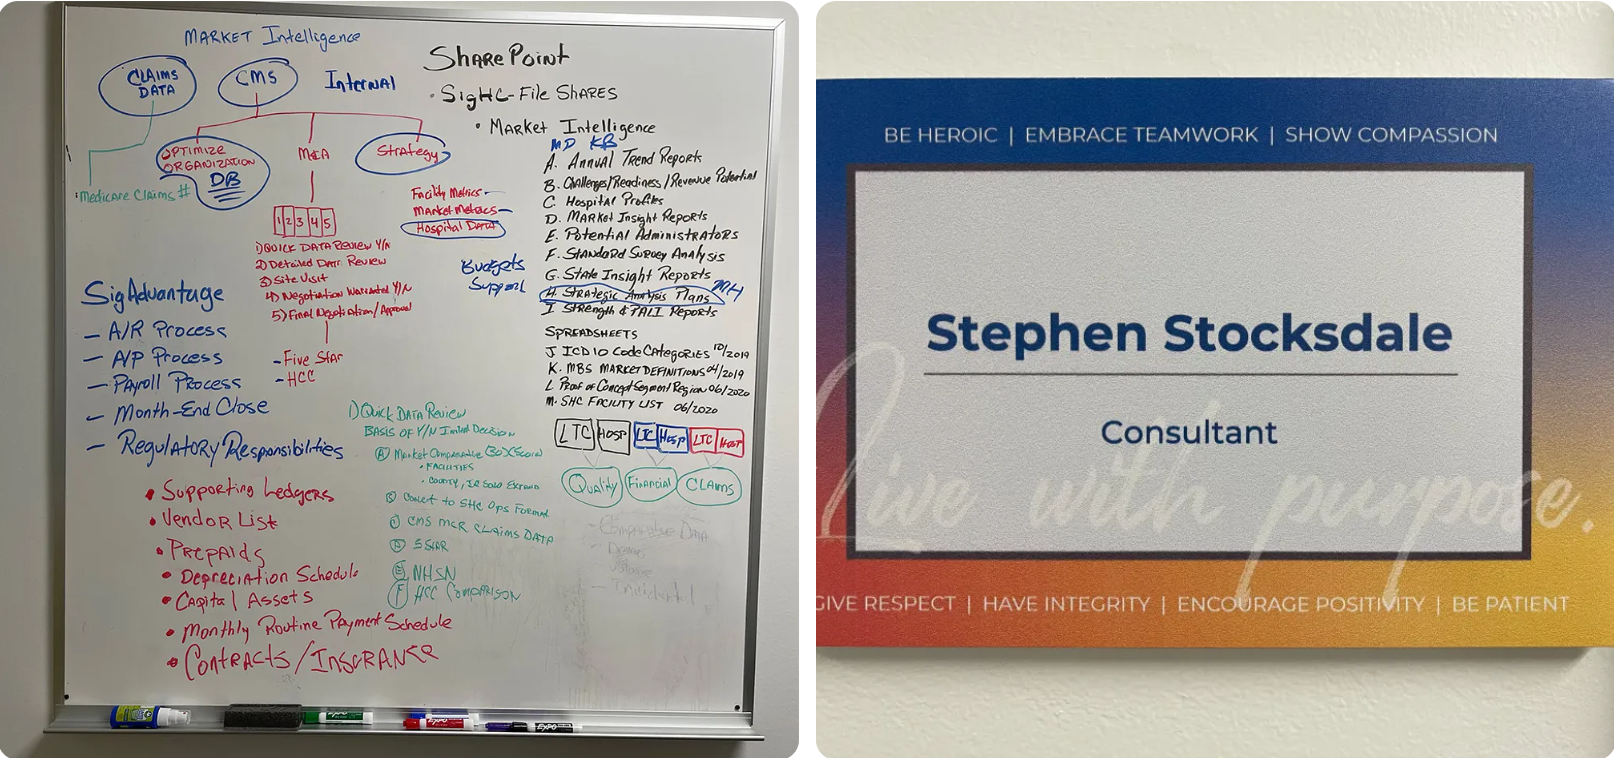 MARKET Intelligence
CLAIMS
DATA
CMS
Internal
OPTIMIZE
ORGANIZATION
DB
M&A
Strategy
Medicare Claims #
1 2 3 4 5
1) QUICK DATA REVIEW Y/N
2) Detailed Data Review
3) Site Visit
4) Negotiation Warranted Y/N
5) Final Negotiation/Approval
- Five Star
- HCC
Facility Metrics
Market Metrics
Hospital DATA
Budgets
Support
SharePoint
• SigHC-File SHARES
• Market Intelligence
MD KB
A. Annual Trend Reports
B. Challenges/Readiness/Revenue Potential
C. Hospital Profiles
D. Market Insight Reports
E. Potential Administrators
F. Standard Survey Analysis
G. State Insight Reports
H. Strategic Analysis Plans MH
I Strength & PALI Reports
SPREADSHEETS
J ICD10 Code Categories 10/2019
K. MBS MARKET DEFINITIONS 04/2019
L Proof of Concept Segment Region 06/2020
M. SHC FACILITY LIST 06/2020
LTC HOSP LTC HOSP LTC HOSP
Quality Financial CLAIMS
SigAdvantage
- A/R Process
- A/P Process
- Payroll Process
- Month-End Close
- Regulatory Responsibilities
• Supporting Ledgers
• Vendor List
• Prepaids
• Depreciation Schedule
• Capital Assets
• Monthly Routine Payment Schedule
• Contracts/Insurance
1) Quick Data Review
BASIS OF Y/N Initial Decision
A Market Comparative
• FACILITIES
• County,
B Convert to SHC Ops Format
C CMS MCR CLAIMS DATA
D 5 STAR
E NHSN
F HCC COMPARISON
Comparative Data
BE HEROIC | EMBRACE TEAMWORK | SHOW COMPASSION
Stephen Stocksdale
Consultant
Live with purpose.
GIVE RESPECT | HAVE INTEGRITY | ENCOURAGE POSITIVITY | BE PATIENT